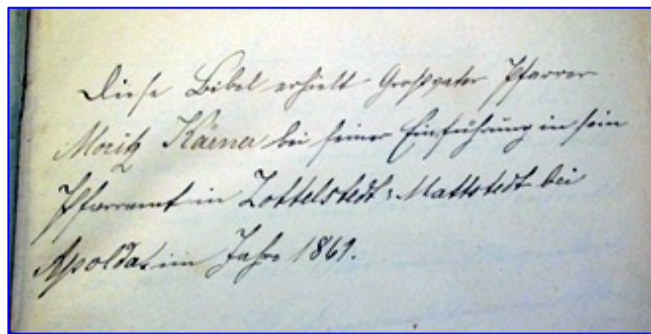 Diese Bibel erhielt Großvater Pfarrer
Moritz Körner bei seiner Einführung in sein
Pfarramt in Zottelstedt-Mattstedt bei
Apolda im Jahre 1869.